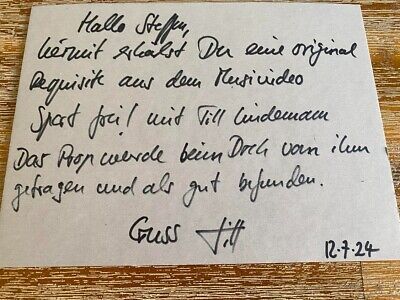 Hallo Steffen,
hiermit erhälst Du eine original
Requisite aus dem Musivideo
Sport frei! mit Till Lindemann
Das Prop werde beim Dreh von ihm
getragen und als gut befunden.
Gruss Till
12.7.24